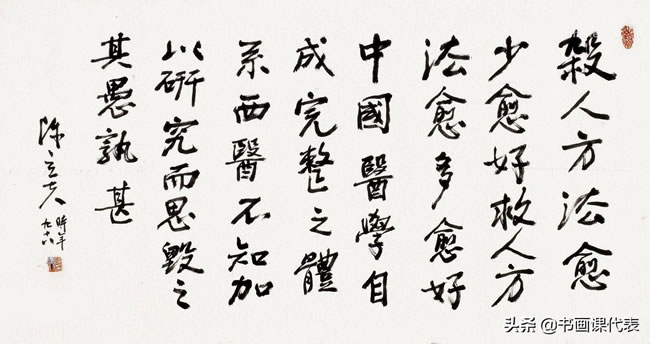 殺人方法愈
少愈好救人方
法愈多愈好
中國醫學自
成完整之體
系西醫不知加
以研究而思毀之
其愚孰甚
陳立夫時年九十八
头条 @书画课代表